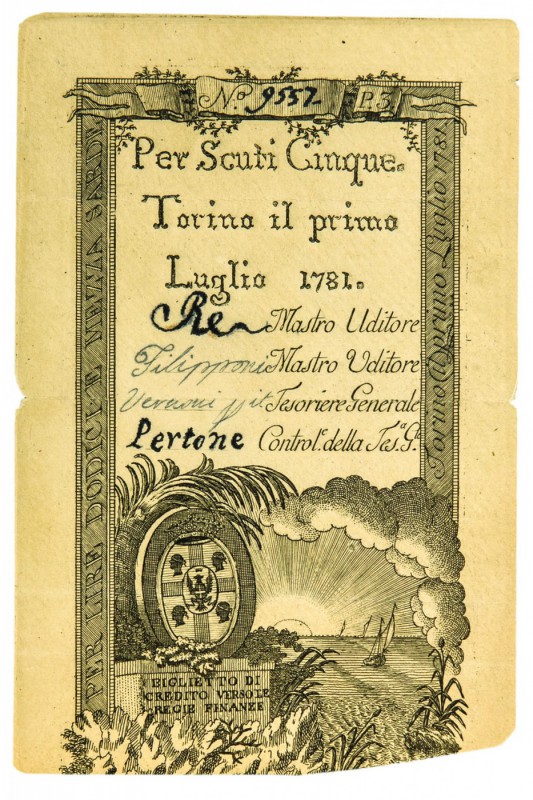 Nº. 9557 P. 5.
Per Scuti Cinque.
Torino il primo
Luglio 1781.
Re Mastro Uditore
Filipponi Mastro Uditore
Tesoriere Generale
Pertone Control.e della Tes.a G.le
PER LIRE DODICI E MEZZA SARDE
Torino il primo Luglio 1781.
BIGLIETTO DI
CREDITO VERSO LE
REGIE FINANZE